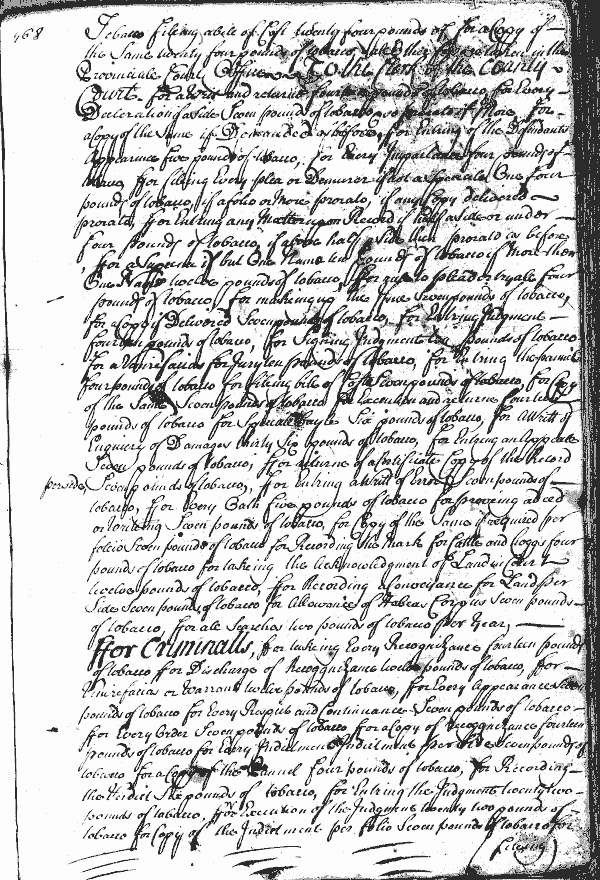 468
Tobacco filing a bill of Cost twenty four pounds of for a Copy of
the Same twenty four pounds of tobacco, all other fees as taken in the
Provinciale Court Office To the Clerk of the County
Court for a writt and returne fourteen pounds of tobacco for Every
Declaration a side Seven pounds of tobacco, so prorato if More, for
a copy of the same if Demanded as before, for Entring of the Defendants
Appearance five pounds of tobacco, for Every Imparlance four pounds of
tobacco, ffor fileing Every plea or Demurrer if not a Speciale One four
pounds of tobacco, if a folio or More prorato, if any Copy delivered
prorato, ffor Entring any Matter upon Record if half a side or under
four pounds of tobacco, if above half a Side then prorato as before
ffor a Supena if but One Name ten pounds of tobacco if More then
One Name twelve pounds of tobacco, ffor rule to plead or tryale four
pounds of tobacco for making up the Issue Seven pounds of tobacco,
for a Copy if Delivered Seven pounds of tobacco, for Entring Judgment
fourteen pounds of tobacco, for Signing Judgment ten pounds of tobacco
for a Venire facias for Jury ten pounds of tobacco, for Entring the pannel
four pounds of tobacco for fileing bill of Costs Seven pounds of tobacco, for Copy
of the Same Seven pounds of tobacco for Execution and returne fourteen
pounds of tobacco for Speciale bayle Six pounds of tobacco, for A Writt of
Enquiery of Damages thirty Six pounds of tobacco, for Entring an Appeale
Seven pounds of tobacco, ffor returne of a Certificate Copy of the Record
per side Seven pounds of tobacco, ffor Entring a Writt of Error Seven pounds of
tobacco, for Every Oath five pounds of tobacco for proving a deed
or writeing Seven pounds of tobacco, for Copy of the Same if required per
folio Seven pounds of tobacco for Recording the Mark for Cattle and hoggs four
pounds of tobacco for taking the Acknowledgment of Land in Court
twelve pounds of tobacco, ffor Recording a Conveyance for Land per
Side Seven pounds of tobacco for Allowance of Habeas Corpus Seven pounds
of tobacco, for all Searches two pounds of tobacco per Year,
ffor Criminalls, ffor taking Every Recognizance fourteen pounds
of tobacco ffor Discharge of Recognizance twelve pounds of tobacco, ffor
Venire facias or Warrant twelve pounds of tobacco, ffor Every Appearance Seven
pounds of tobacco for Every Respite and Continuance Seven pounds of tobacco
ffor Every Order Seven pounds of tobacco for a Copy of Recognizance fourteen
pounds of tobacco for Every Indictment per side Seven pounds of
tobacco for a Copy of the Pannel four pounds of tobacco, for Recording
the Verdict Six pounds of tobacco, for Entring the Judgment twenty two
pounds of tobacco, ffor Execution of the Judgment twenty two pounds of
tobacco for Copy of the Indictment per folio Seven pounds of tobacco for
fileing